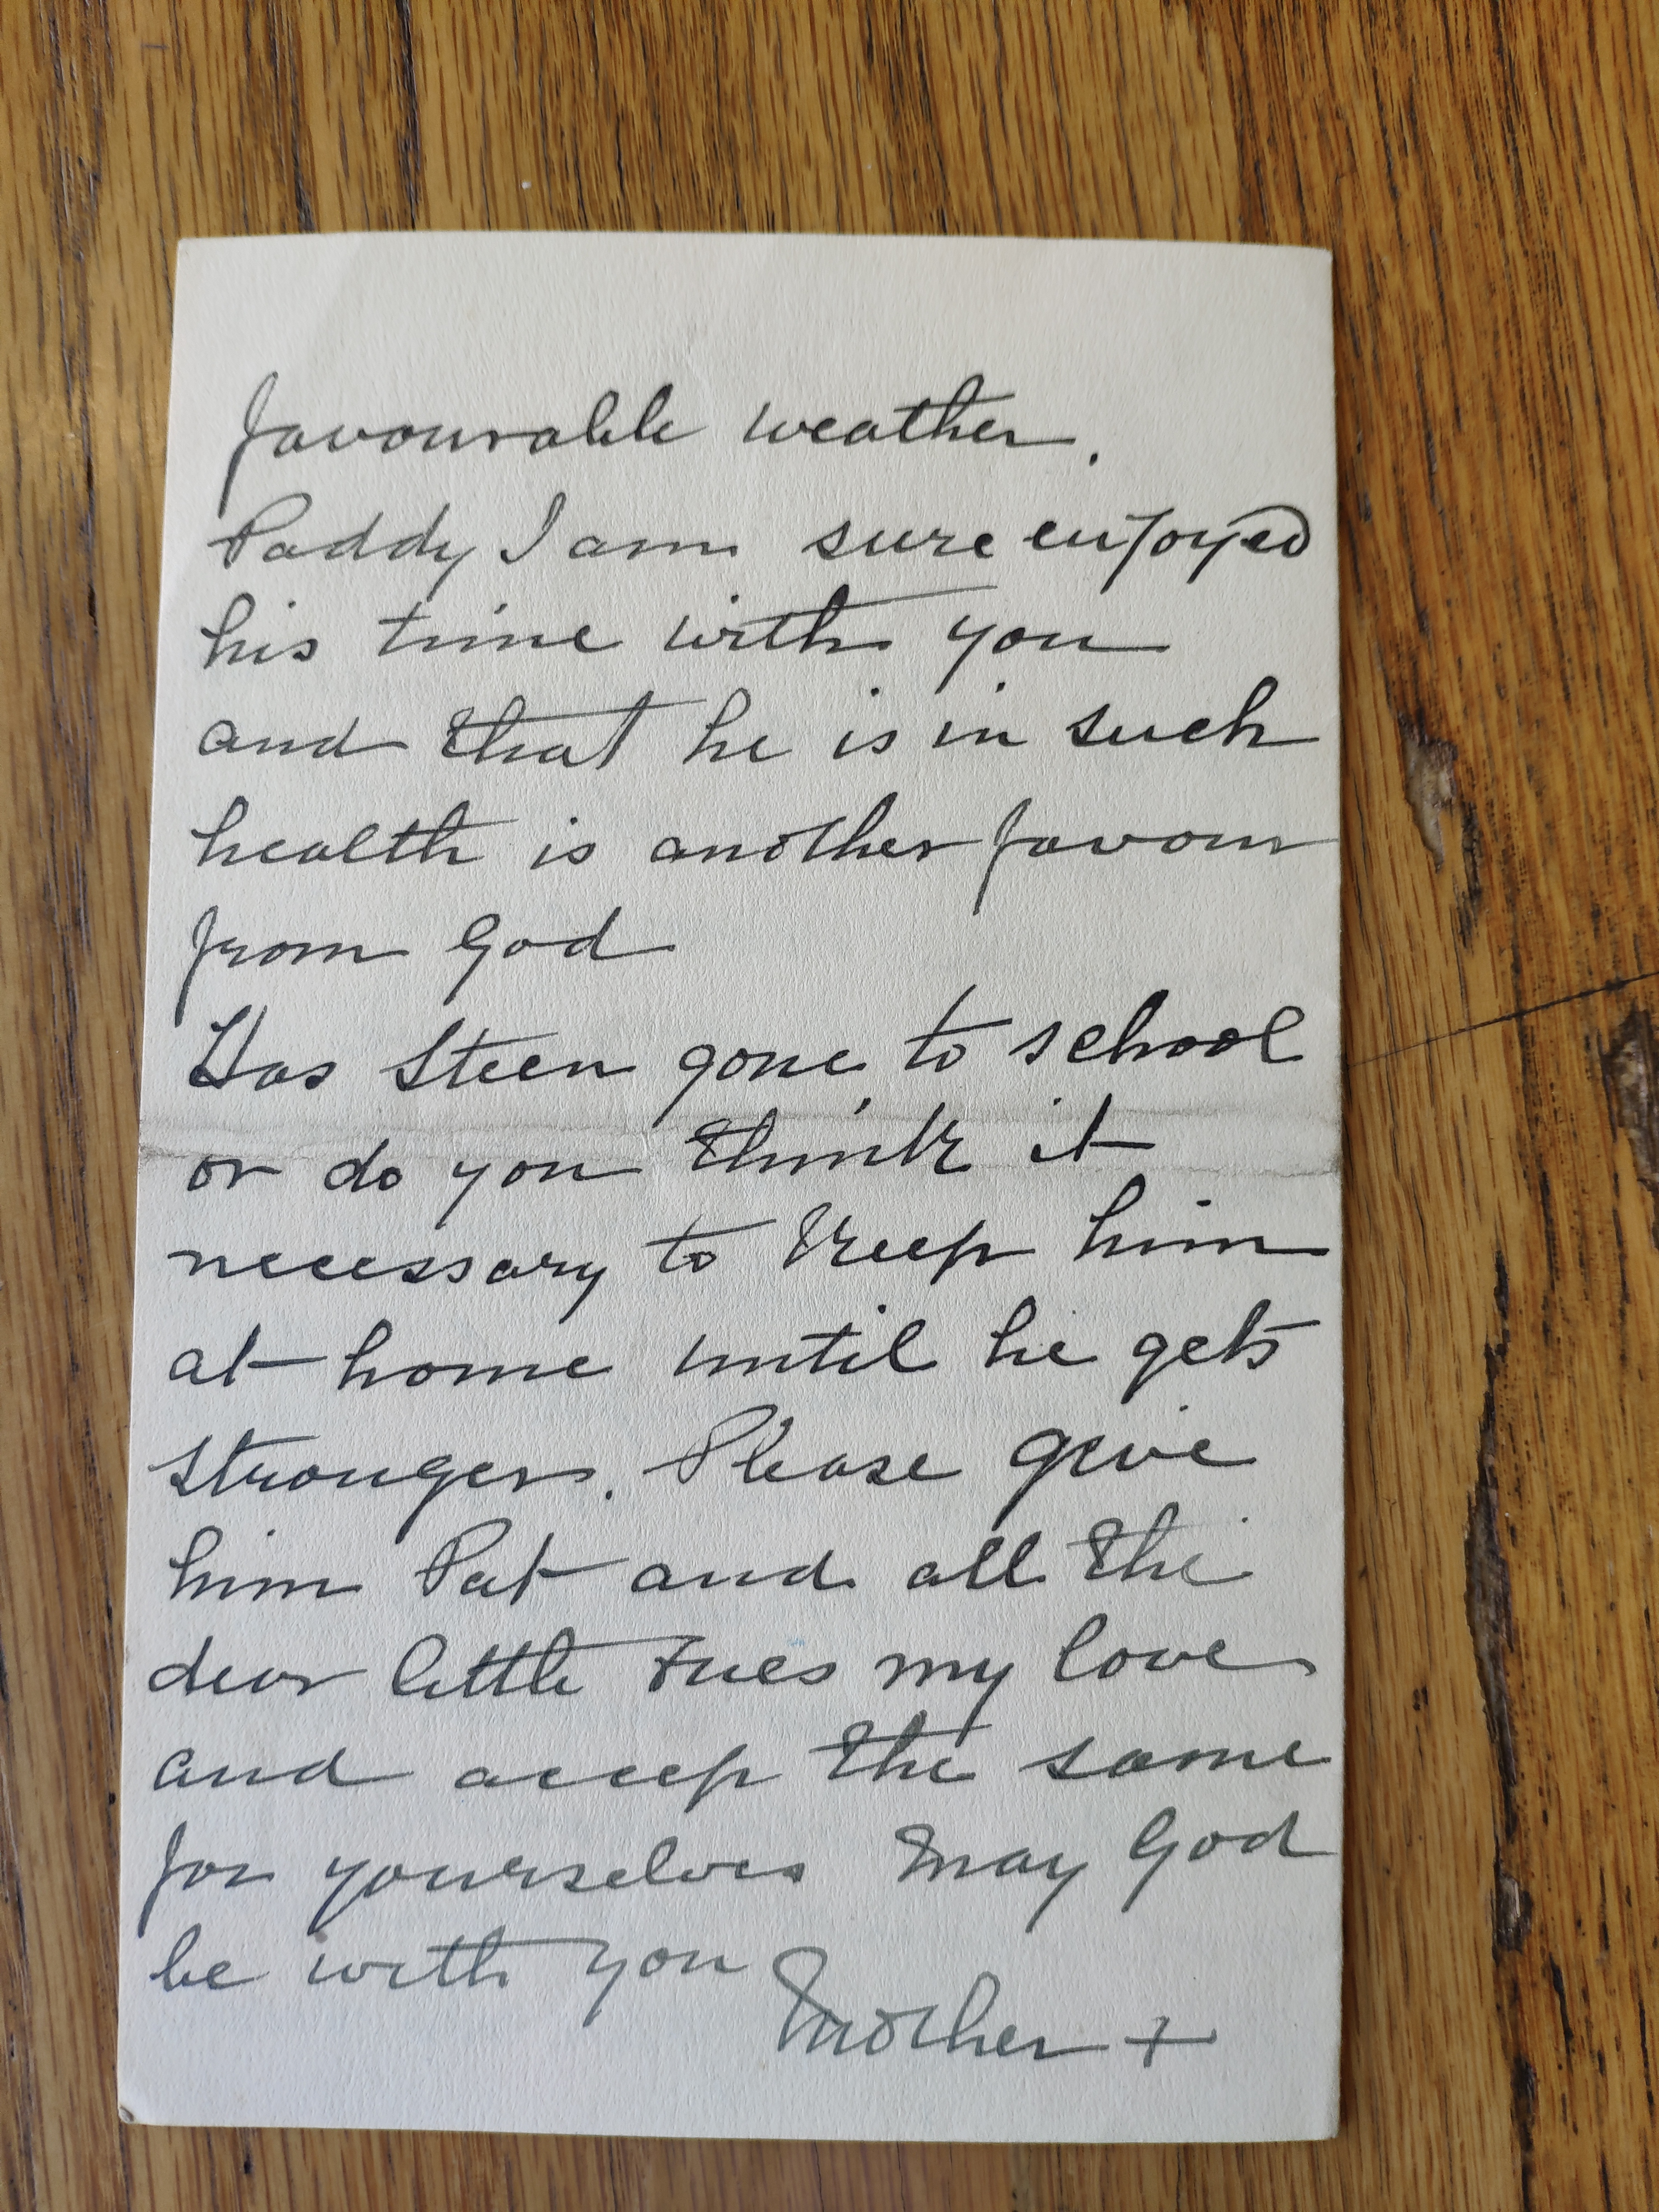 favourable weather.
Paddy I am sure enjoyed
his time with you
and that he is in such
health is another favour
from God
Has Steen gone to school
or do you think it
necessary to keep him
at home until he gets
stronger. Please give
him Pat and all the
dear little my love
and accep the same
for yourselves May God
be with you
Mother +